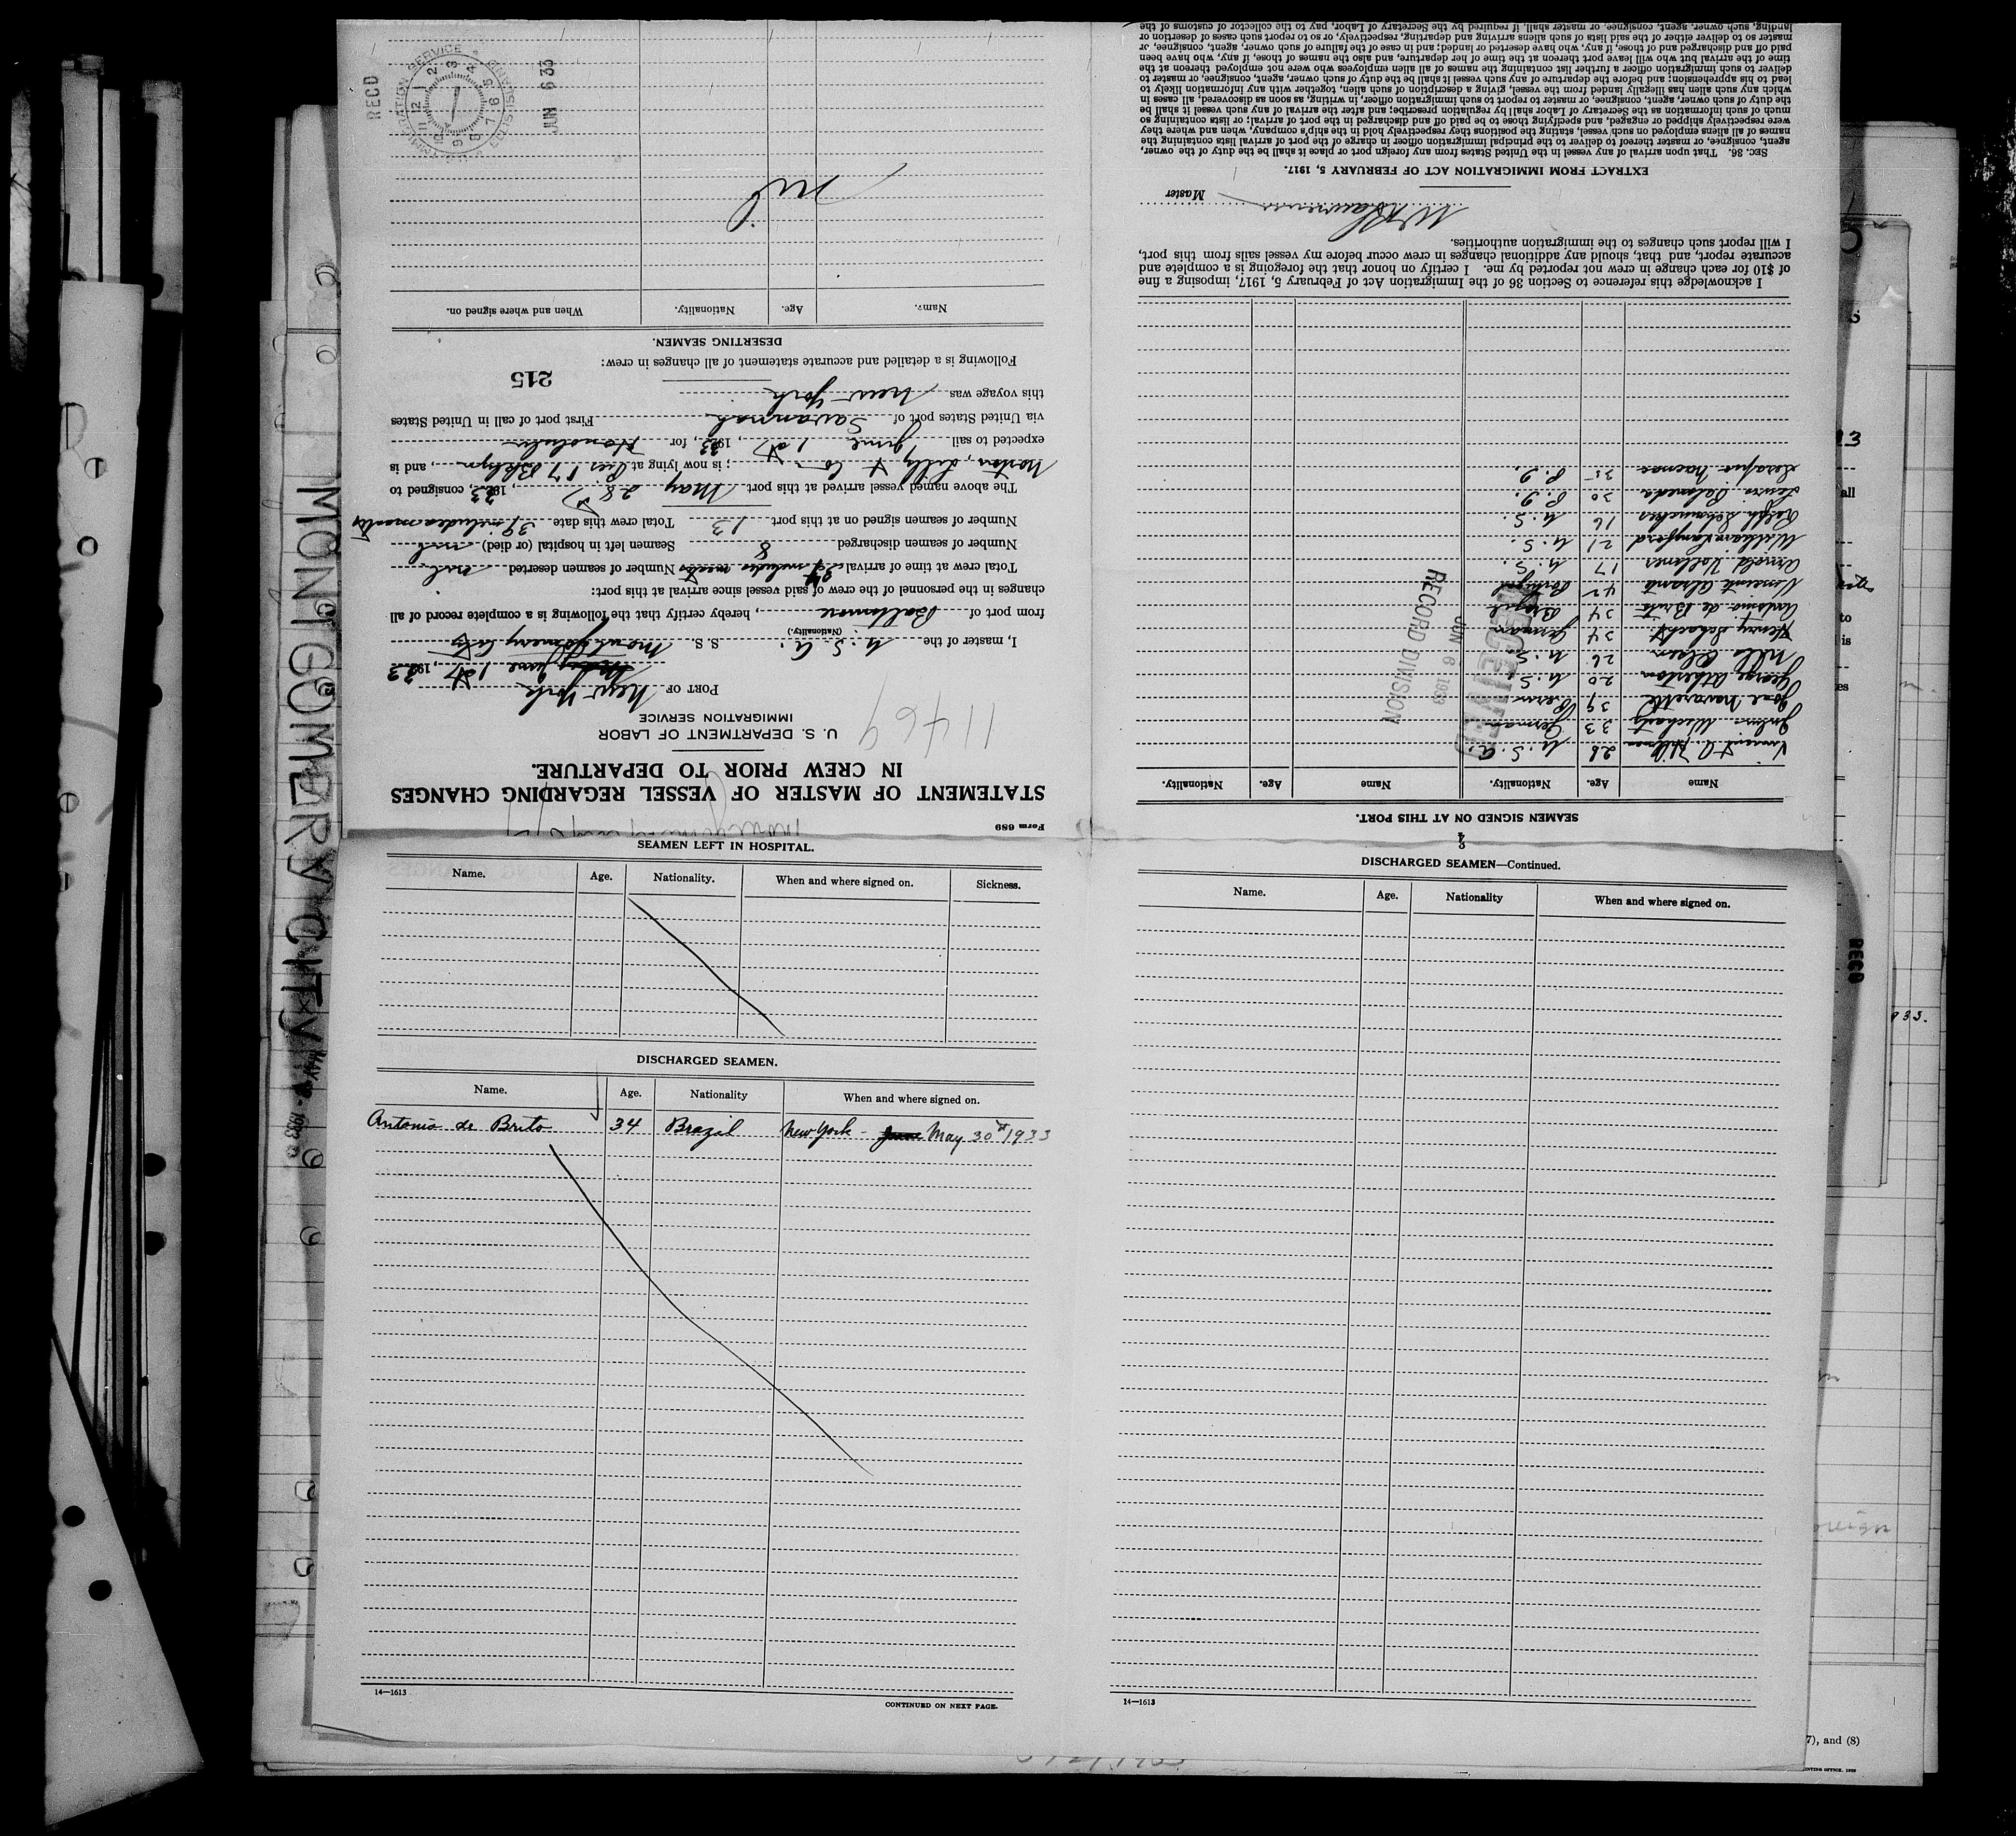 Form 689
STATEMENT OF MASTER OF VESSEL REGARDING CHANGES
IN CREW PRIOR TO DEPARTURE.
U. S. DEPARTMENT OF LABOR
IMMIGRATION SERVICE
11469
PORT OF New York
June 1st, 1933
I, master of the U.S.A. S. S. Montgomery City
(Nationality.)
from port of Baltimore, hereby certify that the following is a complete record of all
changes in the personnel of the crew of said vessel since arrival at this port:
Total crew at time of arrival 34 includes master Number of seamen deserted nil
Number of seamen discharged 8 Seamen left in hospital (or died) nil
Number of seamen signed on at this port 13 Total crew this date 39 includes master
The above named vessel arrived at this port May 28, 1933, consigned to
Norton, Lilly & Co; is now lying at Pier 17 Bklyn, and is
expected to sail June 1st, 1933, for Honolulu
via United States port of Savannah First port of call in United States
this voyage was New York
Following is a detailed and accurate statement of all changes in crew:
215
DESERTING SEAMEN.
Name. Age. Nationality. When and where signed on.
nil
RECD
JUN 6 33
SEAMEN SIGNED ON AT THIS PORT.
Name Age. Nationality. Name Age. Nationality.
Vincent A. Hillman 26 U.S.A.
33 German
Jose Navarette 39 Peru
George Atherton 20 U.S.
Nils Olsen 26 U.S.
Henry Schacht 34 German
Antonio de Brito 34 Brazil
42
Arnold Vollmers 17 U.S.
William Langford 21 U.S.
Ralph 16 U.S.
30 P.I.
35 P.I.
RECEIVED
JUN 6 1933
RECORD DIVISION
I acknowledge this reference to Section 36 of the Immigration Act of February 5, 1917, imposing a fine
of $10 for each change in crew not reported by me. I certify on honor that the foregoing is a complete and
accurate report, and that, should any additional changes in crew occur before my vessel sails from this port,
I will report such changes to the immigration authorities.
Master
EXTRACT FROM IMMIGRATION ACT OF FEBRUARY 5, 1917.
SEC. 36. That upon arrival of any vessel in the United States from any foreign port or place it shall be the duty of the owner,
agent, consignee, or master thereof to deliver to the principal immigration officer in charge of the port of arrival lists containing the
names of all aliens employed on such vessel, stating the positions they respectively hold in the ship's company, when and where they
were respectively shipped or engaged, and specifying those to be paid off and discharged in the port of arrival; or lists containing so
much of such information as the Secretary of Labor shall by regulation prescribe; and after the arrival of any such vessel it shall be
the duty of such owner, agent, consignee, or master to report to such immigration officer, in writing, as soon as discovered, all cases in
which any such alien has illegally landed from the vessel, giving a description of such alien, together with any information likely to
lead to his apprehension; and before the departure of any such vessel it shall be the duty of such owner, agent, consignee, or master to
deliver to such immigration officer a further list containing the names of all alien employees who were not employed thereon at the
time of the arrival but who will leave port thereon at the time of her departure, and also the names of those, if any, who have been
paid off and discharged and of those, if any, who have deserted or landed; and in case of the failure of such owner, agent, consignee, or
master so to deliver either of the said lists of such aliens arriving and departing, respectively, or so to report such cases of desertion or
landing, such owner, agent, consignee, or master shall, if required by the Secretary of Labor, pay to the collector of customs of the
SEAMEN LEFT IN HOSPITAL.
Name. Age. Nationality. When and where signed on. Sickness.
DISCHARGED SEAMEN.
Name. Age. Nationality When and where signed on.
Antonio de Brito 34 Brazil New York - May 30 1933
14—1613
CONTINUED ON NEXT PAGE.
DISCHARGED SEAMEN—Continued.
Name. Age. Nationality When and where signed on.
14—1613
MONTGOMERY CITY
RECD
7), and (8)